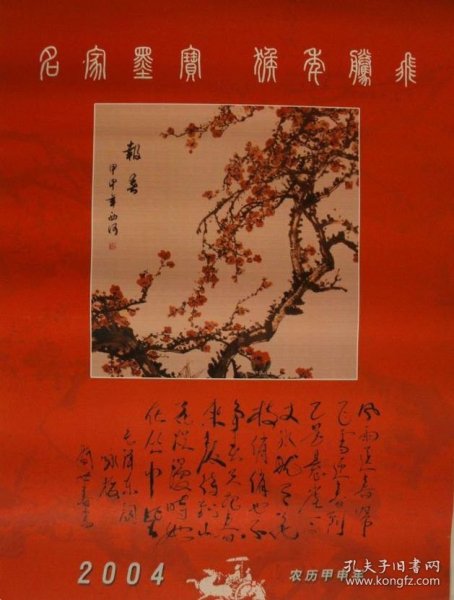 名家墨寶 猴年騰飛
報春
甲申年
風雨送春歸
飞雪迎春到
已是悬崖百
丈冰犹有花
枝俏俏也不
争春只把春
来报待到山
花烂漫时她
在丛中笑
毛泽东词
咏梅
2004
农历甲申年
孔夫子旧书网
www.kongfz.com